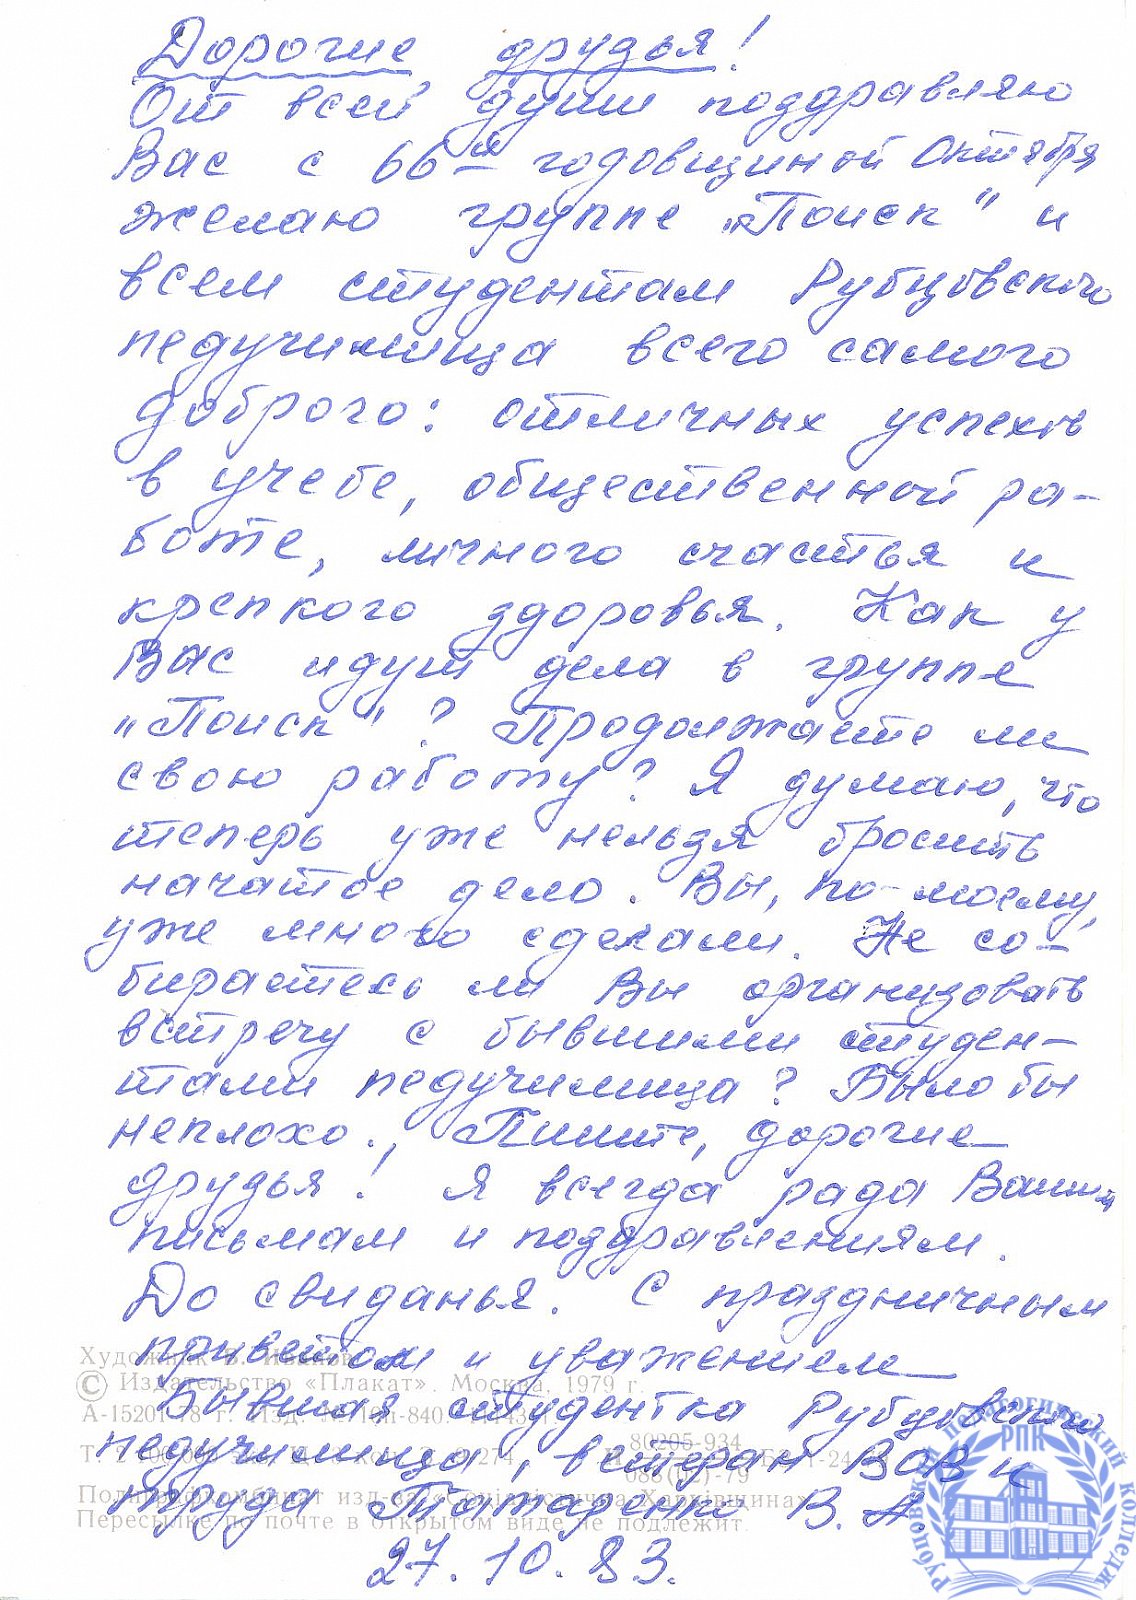 Дорогие друзья!
От всей души поздравляю
Вас с 66й годовщиной Октября
желаю группе „Поиск" и
всем студентам Рубцовского
педучилища всего самого
доброго: отличных успехов
в учебе, общественной ра-
боте, личного счастья и
крепкого здоровья. Как у
Вас идут дела в группе
„Поиск"? Продолжаете ли
свою работу? Я думаю, что
теперь уже нельзя бросить
начатое дело. Вы, по-моему,
уже много сделали. Не со-
бираетесь ли Вы организовать
встречу с бывшими студен-
тами педучилища? Было бы
неплохо., Пишите, дорогие
друзья! Я всегда рада Вашим
письмам и поздравлениям.
До свиданья. С праздничным
приветом и уважением
Художник В.
© Издательство «Плакат». Москва, 1979 г.
Бывшая студентка Рубцовского
А-15201 78 г. Изд.
80205-934
педучилища, ветеран ВОВ и
088(02)-79
труда В. А.
Пересылке по почте в открытом виде не подлежит.
27.10.83.
Рубцовский педагогический колледж
РПК